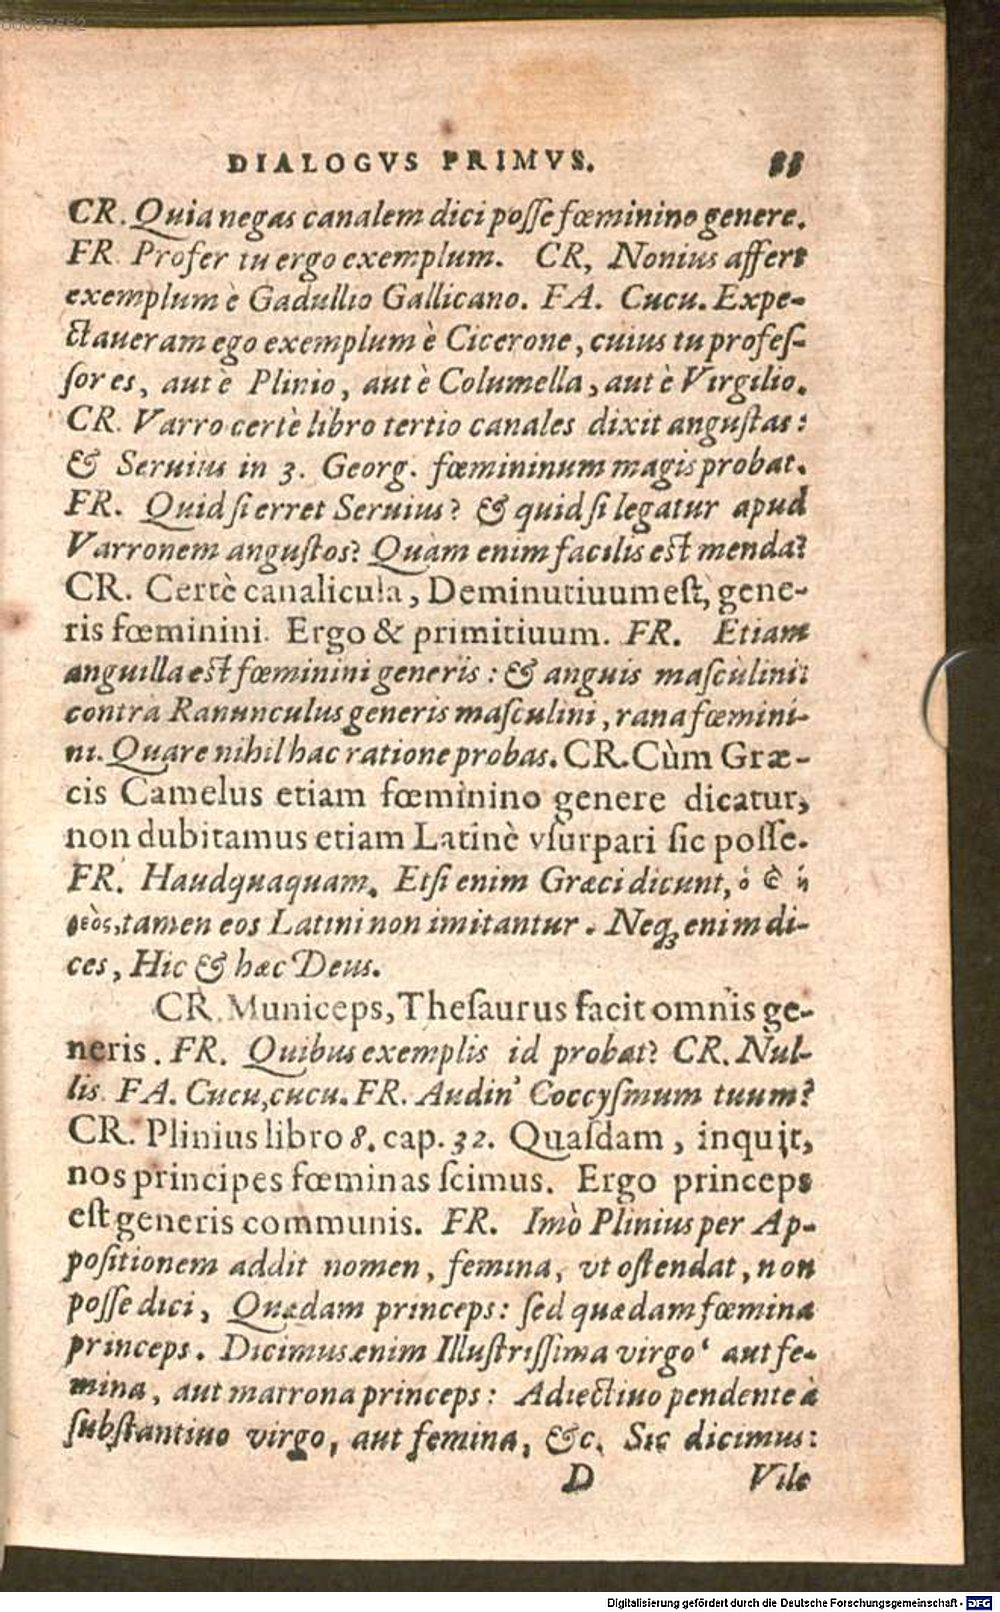 DIALOGVS PRIMVS.
CR. Quia negas canalem dici posse fœminino genere.
FR. Profer tu ergo exemplum. CR, Nonius affert
exemplum è Gadullio Gallicano. FA. Cucu. Expe-
ctaueram ego exemplum è Cicerone, cuius tu profes-
sor es, aut è Plinio, aut è Columella, aut è Virgilio.
CR. Varro certè libro tertio canales dixit angustas:
& Seruius in 3. Georg. fœmininum magis probat.
FR. Quid si erret Seruius? & quid si legatur apud
Varronem angustos? Quàm enim facilis est menda?
CR. Certè canalicula, Deminutiuum est, gene-
ris fœminini. Ergo & primitiuum. FR. Etiam
anguilla est fœminini generis: & anguis masculini:
contrà Ranunculus generis masculini, rana fœmini-
ni. Quare nihil hac ratione probas. CR. Cùm Græ-
cis Camelus etiam fœminino genere dicatur,
non dubitamus etiam Latinè vsurpari sic posse.
FR. Haudquaquam. Etsi enim Græci dicunt, ὁ & ἡ
θεὸς, tamen eos Latini non imitantur. Neq; enim di-
ces, Hic & hæc Deus.
CR. Municeps, Thesaurus facit omnis ge-
neris. FR. Quibus exemplis id probat? CR. Nul-
lis. FA. Cucu, cucu. FR. Audin' Coccysmum tuum?
CR. Plinius libro 8. cap. 32. Quasdam, inquit,
nos principes fœminas scimus. Ergo princeps
est generis communis. FR. Imò Plinius per Ap-
positionem addit nomen, femina, vt ostendat, non
posse dici, Quædam princeps: sed quædam fœmina
princeps. Dicimus enim Illustrissima virgo' aut fe-
mina, aut matrona princeps: Adiectiuo pendente à
substantiuo virgo, aut femina, &c. Sic dicimus:
D Vile
Digitalisierung gefördert durch die Deutsche Forschungsgemeinschaft - DFG